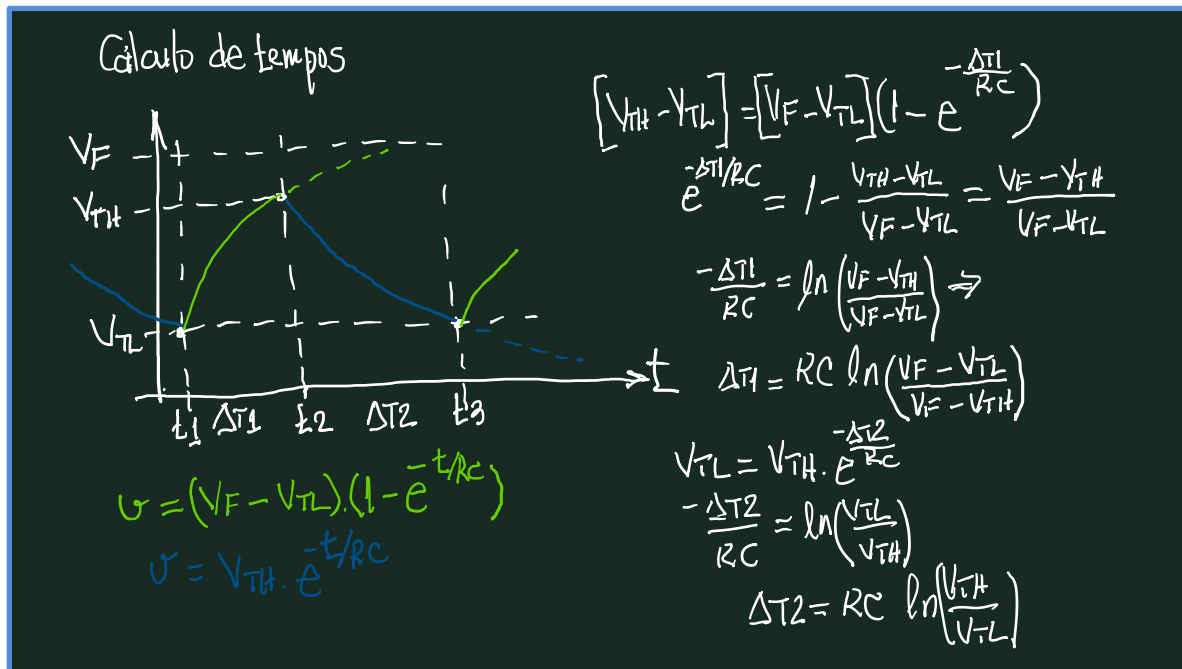 Cálculo de tempos
VF
VTH
VTL
t
t1 ΔT1 t2 ΔT2 t3
v = (VF - VTL).(1 - e^-t/RC)
v = VTH . e^-t/RC
[VTH - VTL] = [VF - VTL](1 - e^-ΔT1/RC)
e^-ΔT1/RC = 1 - (VTH - VTL)/(VF - VTL) = (VF - VTH)/(VF - VTL)
-ΔT1/RC = ln((VF - VTH)/(VF - VTL)) ⇒
ΔT1 = RC ln((VF - VTL)/(VF - VTH))
VTL = VTH . e^-ΔT2/RC
-ΔT2/RC = ln(VTL/VTH)
ΔT2 = RC ln(VTH/VTL)